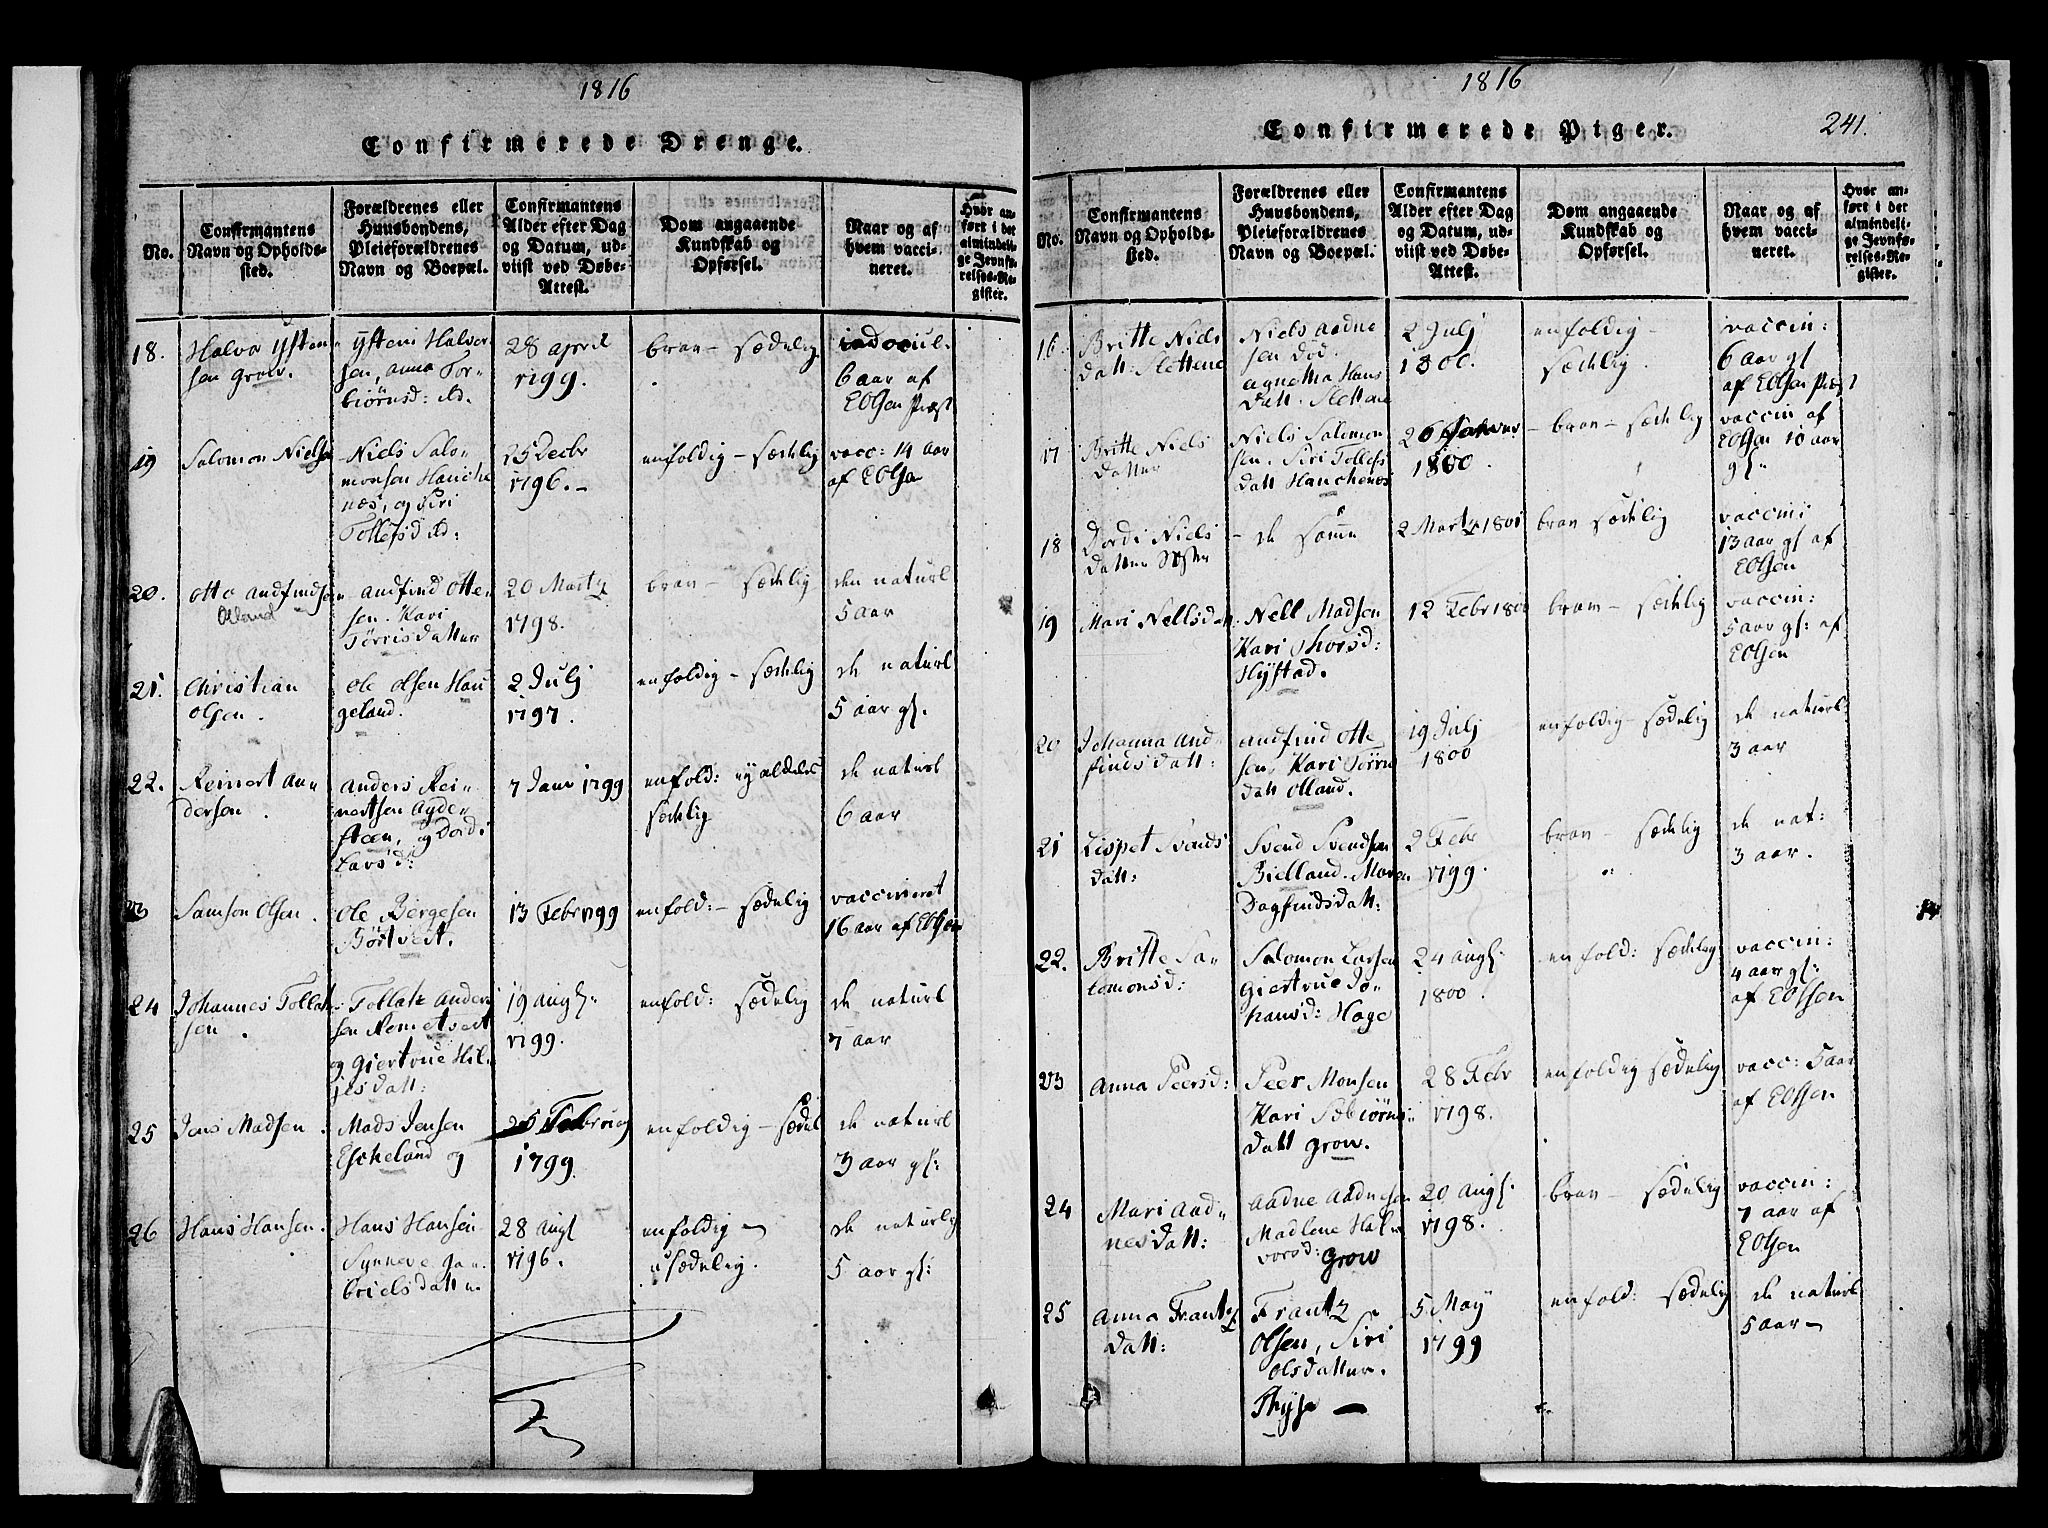 1816
Confirmerede Drenge.
No.
Confirmantens
Navn og Opholds-
sted.
Forældrenes eller
Huusbondens,
Pleieforældrenes
Navn og Boepæl.
Confirmantens
Alder efter Dag
og Datum, ud-
viist ved Døbe-
Attest.
Dom angaaende
Kundskab og
Opførsel.
Naar og af
hvem vacci-
neret.
Hvor an-
ført i det
almindeli-
ge Jevnfø-
relses-Re-
gister.
18.
Halvor Ysten
sen Grow.
Ysten Halvor
sen, Anna Tor-
biørnsd:
28 april
1799.
brav - sædelig
inocul.
6 aar af
EOlsen Præst
19
Salomon Nielsen
Niels Salo-
monsen Hauche
næs, og Siri
Tollefsd:
25 Decbr
1796. -
enfoldig - sædelig
vacc: 14 aar
af EOlsen
20.
Otto Andfindsen
Olland
Andfind Otte-
sen. Kari
Tørrisdatter
20 Martz
1798.
brav - sædelig
den naturl
5 aar
21.
Christian
Olsen.
Ole Olsen Hau
geland.
2 Julj
1797.
enfoldig - sædelig
de naturl
5 aar gl.
22.
Reinert An-
dersen.
Anders Rei-
nertsen Ayde-
steen, og Dordi
Larsd:
7 Janr 1799
enfold: ey aldeles
sædelig
de naturl
6 aar
23
Samson Olsen.
Ole Børgesen
Børtvert.
13 Febr 1799
enfold: - sædelig
vaccineret
16 aar af EOlsen
24
Johannes Tollak
sen.
Tollak Anders
sen Nemetvert
og Giertrue Hil-
jesdatt:
19 augs:
1799.
enfold: sædelig
de naturl
7 aar
25
Jens Madsen.
Mads Jensen
Escheland og
25 Febr
1799
enfoldig - sædel
de naturl
3 aar gl:
26
Hans Hansen.
Hans Hansen
Synneve Ga-
brielsdatter
28 augs
1796.
enfoldig -
usædelig.
de naturlig
5 aar gl:
1816
Confirmerede Piger.
241.
No.
Confirmantens
Navn og Opholds-
sted.
Forældrenes eller
Huusbondens,
Pleieforældrenes
Navn og Boepæl.
Confirmantens
Alder efter Dag
og Datum, ud-
viist ved Døbe-
Attest.
Dom angaaende
Kundskab og
Opførsel.
Naar og af
hvem vacci-
neret.
Hvor an-
ført i det
almindeli-
ge Jevnfø-
relses-Re-
gister.
16
Britte Niels
datt. Slettene
Niels Aadne
sen død.
Agnetha Hans
datt. Slettene
2 Julj
1800.
enfoldig -
sædelig.
vaccin:
6 aar gl
af EOlsen Præst
17
Britte Niels
datter
Niels Salomon
sen. Siri Tollefs
datt Hauchenes
26 Januar
1800.
- brav - sædelig
vaccin af
EOlsen 10 aar
gl.
18
Dordi Niels
datter Søster
- de samme
2 Martz 1801
brav sædelig
vaccin:
13 aar gl af
EOlsen
19
Mari Nellsdatt.
Nell Madsen
Kari Thorsd:
Hystad.
12 Febr 1800
brav - sædelig
vaccin:
5 aar gl: af
EOlsen
20
Johanna And-
findsdatt:
Andfind Otte
sen, Kari Tørris
datt Olland.
19 Julj
1800
enfoldig - sædelig
de naturl:
3 aar
21
Lispet Svends
datt:
Svend Svendsen
Bielland. Maren
Dagfindsdatt:
2 Febr
1799.
brav - sædelig
de nat:
3 aar.
22.
Britte Sa-
lomonsd:
Salomon Larsen
Giertrue Jo-
hansd: Hage
24 augs:
1800.
enfold: sædelig
vaccin:
4 aar gl:
af EOlsen
23
Anna Peersd:
Peer Monsen
Kari Sæbiørns
datt Grow.
28 Febr
1798.
enfoldig sædelig
vacc: 5 aar
af EOlsen
24
Mari Aad-
nesdatt:
Aadne Aadnesen
Madlene Hal-
vorsd: Grow
20 augs:
1798.
brav - sædelig
vaccin:
7 aar af
EOlsen
25
Anna Frantz
datt:
Frantz
Olsen, Siri
Olsdatter.
5 May
1799
enfold: sædelig
de naturl
5 aar -